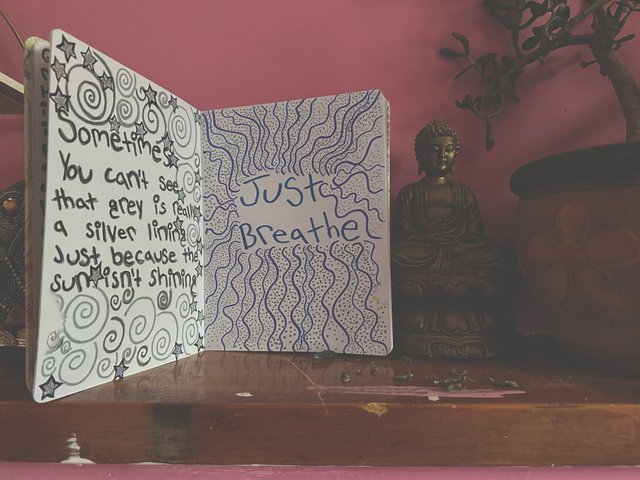 Sometimes
You can't see
that grey is really
a silver lining
Just because the
sun isn't shining
Just
Breathe